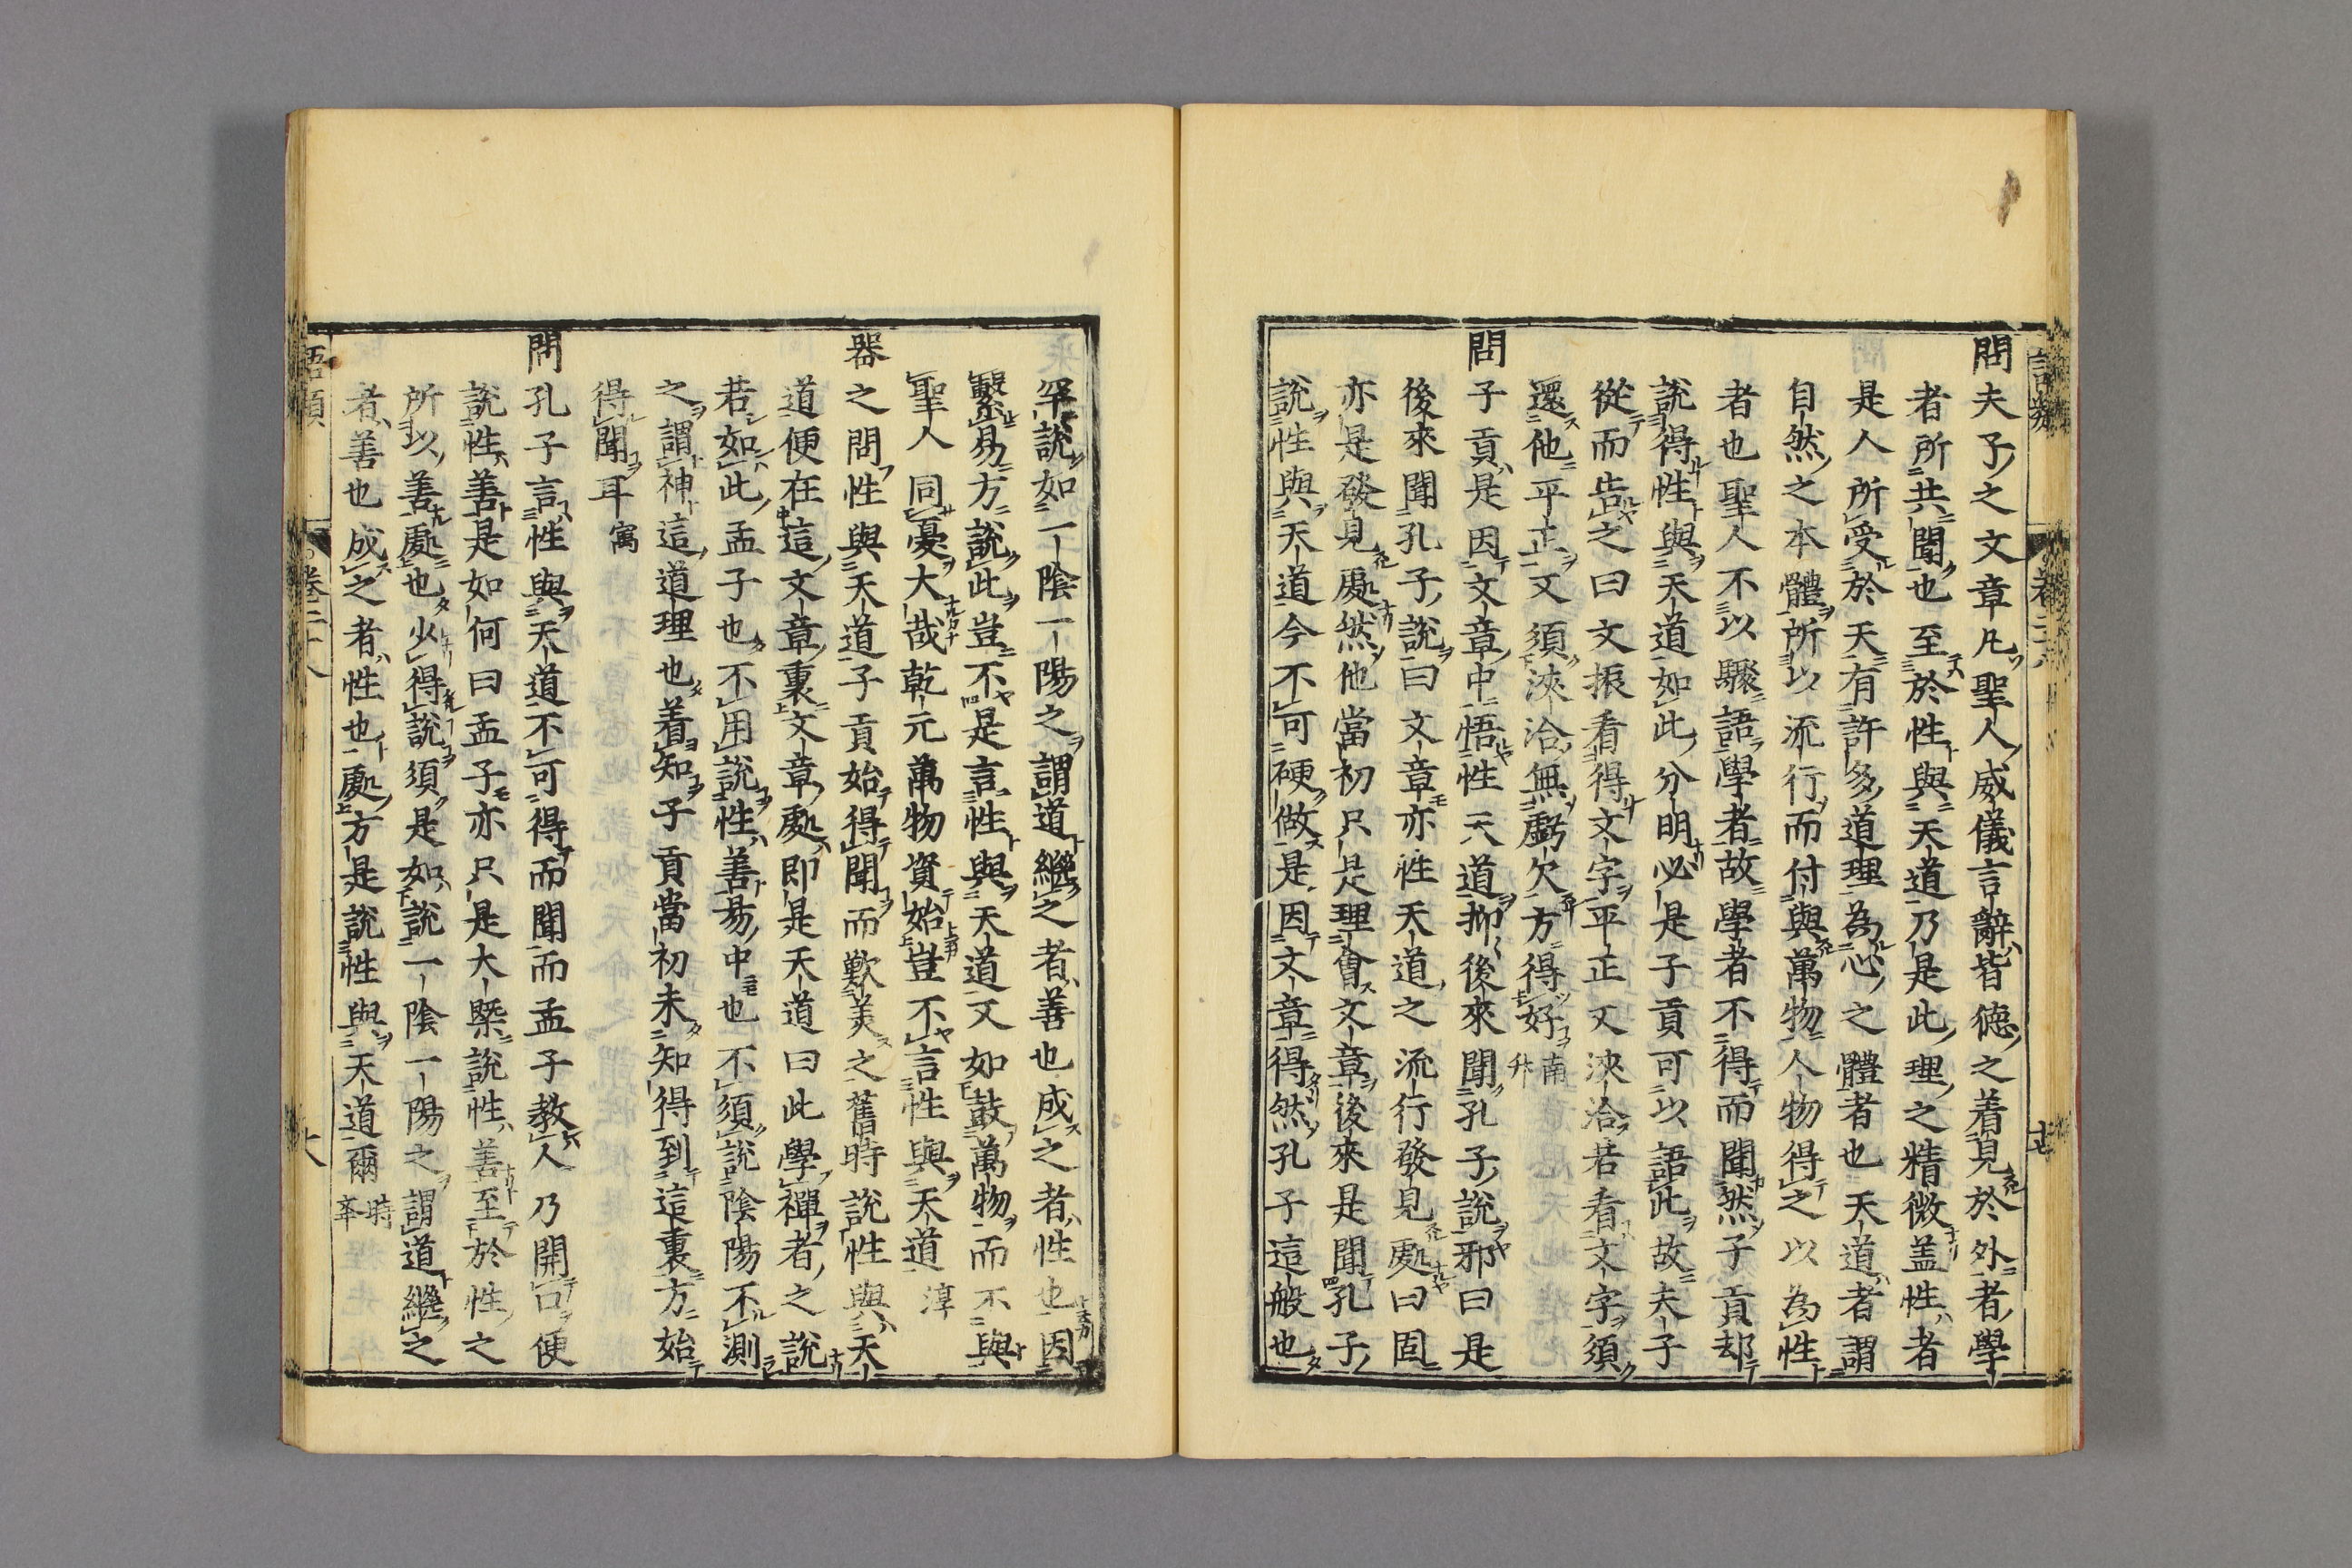 問夫子之文章凡聖人威儀言辭皆德之着見於外者學
者所共聞也至於性與天道乃是此理之精微盖性者
是人所受於天有許多道理為心之體者也天道者謂
自然之本體所以流行而付與萬物人物得之以為性
者也聖人不以驟語學者故學者不得而聞然子貢却
說得性與天道如此分明必是子貢可以語此故夫子
從而告之曰文振看得文字平正又浹洽若看文字須
還他平正又須浹洽無虧欠方得好南升
問子貢是因文章中悟性天道抑後來聞孔子說邪曰是
後來聞孔子說曰文章亦性天道之流行發見處曰固
亦是發見處然他當初只是理會文章後來是聞孔子
說性與天道今不可硬做是因文章得然孔子這般也
罕說如一陰一陽之謂道繼之者善也成之者性也因
繫易方說此豈不是言性與天道又如鼓萬物而不與
聖人同憂大哉乾元萬物資始豈不言性與天道 淳
器之問性與天道子貢始得聞而歎美之舊時說性與天
道便在這文章裏文章處即是天道曰此學禪者之說
若如此孟子也不用說性善易中也不須說陰陽不測
之謂神這道理也着知子貢當初未知得到這裏方始
得聞耳 寓
問孔子言性與天道不可得而聞而孟子教人乃開口便
說性善是如何曰孟子亦只是大槩說性善至於性之
所以善處也少得說須是如說一陰一陽之謂道繼之
者善也成之者性也處方是說性與天道爾 時舉
語類 卷二十八